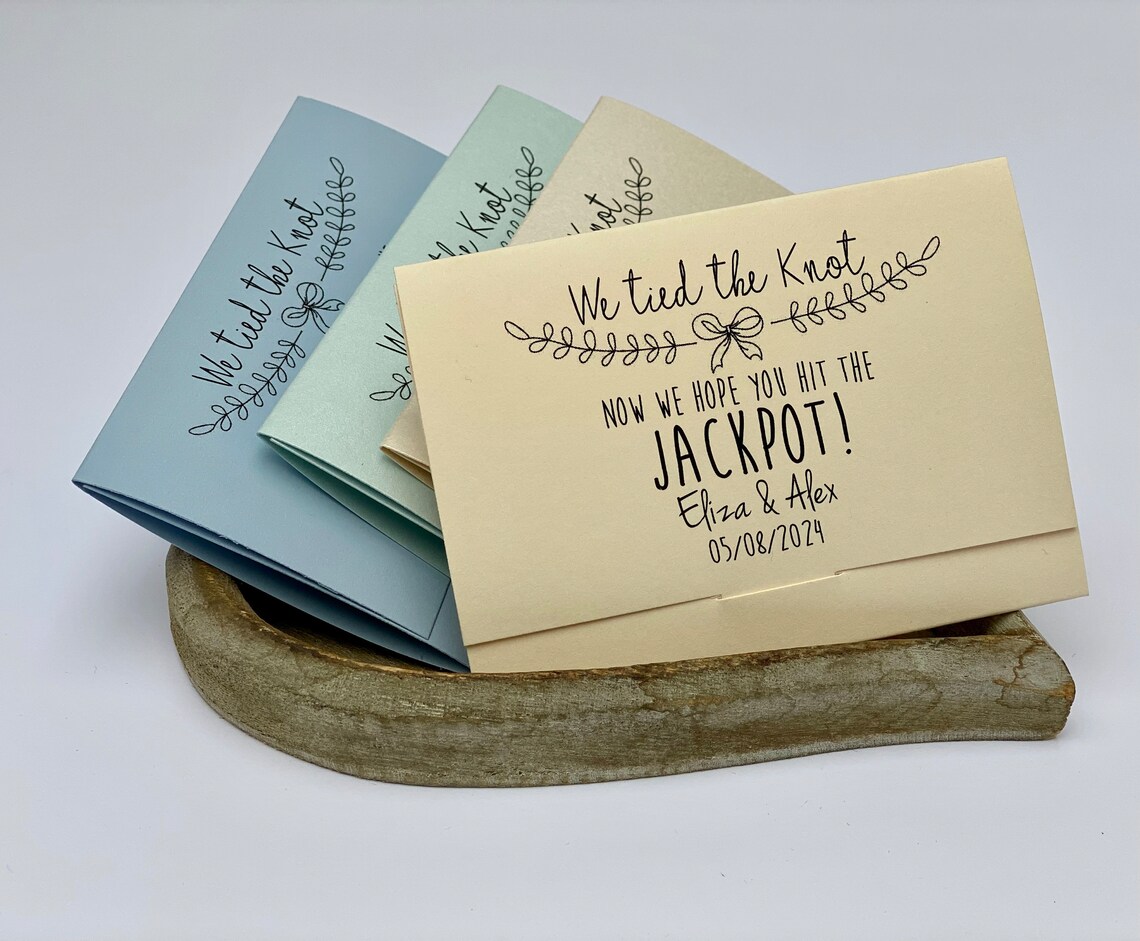 We tied the Knot
We tied the Knot
W
the Knot
Knot
We tied the Knot
NOW WE HOPE YOU HIT THE
JACKPOT!
Eliza & Alex
05/08/2024